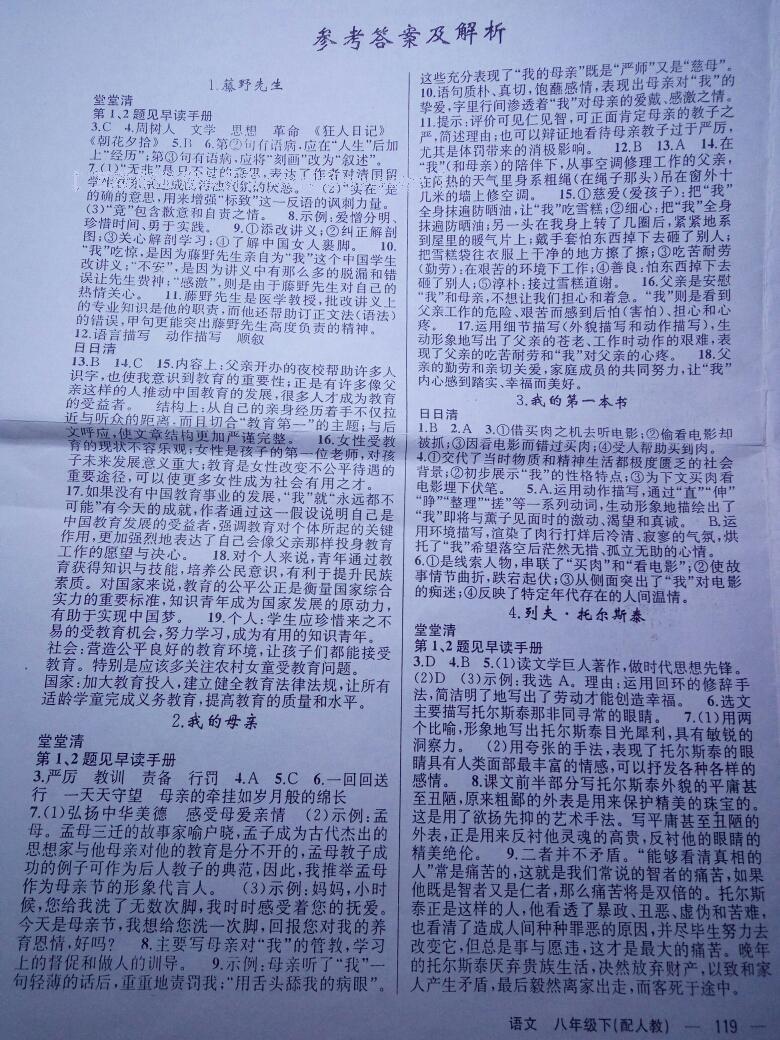 参考答案及解析
1.藤野先生
堂堂清
第1、2题见早读手册
3.C 4.周树人 文学 思想 革命 《狂人日记》
《朝花夕拾》 5.B 6.第②句有语病,应在“人生”后加
上“经历”;第③句有语病,应将“刻画”改为“叙述”。
7.(1)“无非”是只不过的意思,表达了作者对清国留
(2)“实在”是
的确的意思,用来增强“标致”这一反语的讽刺力量。
(3)“竟”包含歉意和自责之情。 8.示例:爱憎分明、
珍惜时间、勇于实践。 9.①添改讲义;②纠正解剖
图;③关心解剖学习;④了解中国女人裹脚。 10.
“我”吃惊,是因为藤野先生亲自为“我”这个中国学生
改讲义;“不安”,是因为讲义中有那么多的脱漏和错
误让先生费神;“感激”,则是由于藤野先生对自己的
热情关心。 11.藤野先生是医学教授,批改讲义上
的专业知识是他的职责,而他还帮助订正文法(语法)
的错误,甲句更能突出藤野先生高度负责的精神。
12.语言描写 动作描写 顺叙
日日清
13.B 14.C 15.内容上:父亲开办的夜校帮助许多人
识字,也使我意识到教育的重要性;正是有许多像父
亲这样的人推动中国教育的发展,很多人才成为教育
的受益者。 结构上:从自己的亲身经历着手不仅拉
近与听众的距离,而且切合“教育第一”的主题;与后
文呼应,使文章结构更加严谨完整。 16.女性受教
育的现状不容乐观;女性是孩子的第一位老师,对孩
子未来发展意义重大;教育是女性改变不公平待遇的
重要途径,可以使更多女性成为社会有用之才。
17.如果没有中国教育事业的发展,“我”就“永远都不
可能”有今天的成就,作者通过这一假设说明自己是
中国教育发展的受益者,强调教育对个体所起的关键
作用,更加强烈地表达了自己会像父亲那样投身教育
工作的愿望与决心。 18.对个人来说,青年通过教
育获得知识与技能,培养公民意识,有利于提升民族
素质。对国家来说,教育的公平公正是衡量国家综合
实力的重要标准,知识青年成为国家发展的原动力,
有助于实现中国梦。 19.个人:学生应珍惜来之不
易的受教育机会,努力学习,成为有用的知识青年。
社会:营造公平良好的教育环境,让孩子们都能接受
教育。特别是应该多关注农村女童受教育问题。
国家:加大教育投入,建立健全教育法律法规,让所有
适龄学童完成义务教育,提高教育的质量和水平。
2.我的母亲
堂堂清
第1、2题见早读手册
3.严厉 教训 责备 行罚 4.A 5.C 6.一回回送
行 一天天守望 母亲的牵挂如岁月般的绵长
7.(1)弘扬中华美德 感受母爱亲情 (2)示例:孟
母。孟母三迁的故事家喻户晓,孟子成为古代杰出的
思想家与他母亲对他的教育是分不开的,孟母教子成
功的例子可作为后人教子的典范,因此,我推举孟母
作为母亲节的形象代言人。 (3)示例:妈妈,小时
候,您给我洗了无数次脚,我时时感受着您的抚爱。
今天是母亲节,我想给您洗一次脚,回报您对我的养
育恩情,好吗? 8.主要写母亲对“我”的管教,学习
上的督促和做人的训导。 9.示例:母亲听了“我”一
句轻薄的话后,重重地责罚我;“用舌头舔我的病眼”。
这些充分表现了“我的母亲”既是“严师”又是“慈母”。
10.语句质朴、真切,饱蘸感情,表现出母亲对“我”的
挚爱,字里行间渗透着“我”对母亲的爱戴、感激之情。
11.提示:评价可见仁见智,可正面肯定母亲的教子之
严,简述理由;也可以辩证地看待母亲教子过于严厉,
尤其是体罚带来的消极影响。 12.B 13.A 14.在
“我”(和母亲)的陪伴下,从事空调修理工作的父亲,
在闷热的天气里身系粗绳(在绳子那头)吊在窗外十
几米的墙上修空调。 15.①慈爱(爱孩子):把“我”
全身抹遍防晒油,让“我”吃雪糕;②细心:把“我”全身
抹遍防晒油;另一头在我身上转了几圈后,紧紧地系
到屋里的暖气片上;戴手套怕东西掉下去砸了别人;
把雪糕袋往衣服上干净的地方擦了擦;③吃苦耐劳
(勤劳):在艰苦的环境下工作;④善良:怕东西掉下去
砸了别人;⑤淳朴:接过雪糕道谢。 16.父亲是安慰
“我”和母亲,不想让我们担心和着急。“我”则是看到
父亲工作的危险、艰苦而感到后怕(害怕)、担心和心
疼。 17.运用细节描写(外貌描写和动作描写),生
动形象地写出了父亲的苍老、工作时动作的艰难,表
现了父亲的吃苦耐劳和“我”对父亲的心疼。 18.父
亲的勤劳和亲切关爱,家庭成员的共同努力,让“我”
内心感到踏实、幸福而美好。
3.我的第一本书
日日清
1.B 2.A 3.①借买肉之机去听电影;②偷看电影却
被抓;③因看电影而错过买肉;④受人帮助买到肉。
4.①交代了当时物质和精神生活都极度匮乏的社会
背景;②初步展示“我”的性格特点;③为下文买肉看
电影埋下伏笔。 5.A.运用动作描写,通过“直”“伸”
“睁”“整理”“搓”等一系列动词,生动形象地描绘出了
“我”即将与薰子见面时的激动、渴望和真诚。 B.运
用环境描写,渲染了肉行打烊后冷清、寂寥的气氛,烘
托了“我”希望落空后茫然无措、孤立无助的心情。
6.①是线索人物,串联了“买肉”和“看电影”;②使故
事情节曲折,跌宕起伏;③从侧面突出了“我”对电影
的痴迷;④反映了特定年代存在的人间温情。
4.列夫·托尔斯泰
堂堂清
第1、2题见早读手册
3.D 4.B 5.(1)读文学巨人著作,做时代思想先锋。
(2)D (3)示例:我选 A。理由:运用回环的修辞手
法,简洁明了地写出了劳动才能创造幸福。 6.选文
主要描写托尔斯泰那非同寻常的眼睛。 7.(1)用两
个比喻,形象地写出托尔斯泰目光犀利,具有敏锐的
洞察力。 (2)用夸张的手法,表现了托尔斯泰的眼
睛具有人类面部最丰富的情感,可以抒发各种各样的
感情。 8.课文前半部分写托尔斯泰外貌的平庸甚
至丑陋,原来粗鄙的外表是用来保护精美的珠宝的。
这是用了欲扬先抑的艺术手法。写平庸甚至丑陋的
外表,正是用来反衬他灵魂的高贵,反衬他的眼睛的
精美绝伦。 9.二者并不矛盾。“能够看清真相的
人”常是痛苦的,这就是我们常说的智者的痛苦,如果
他既是智者又是仁者,那么痛苦将是双倍的。托尔斯
泰正是这样的人,他看透了暴政、丑恶、虚伪和苦难,
也看清了造成人间种种罪恶的原因,并尽毕生努力去
改变它,但总是事与愿违,这才是最大的痛苦。晚年
的托尔斯泰厌弃贵族生活,决然放弃财产,以致和家
人产生矛盾,最后毅然离家出走,而客死于途中。
语文 八年级下(配人教) — 119 —